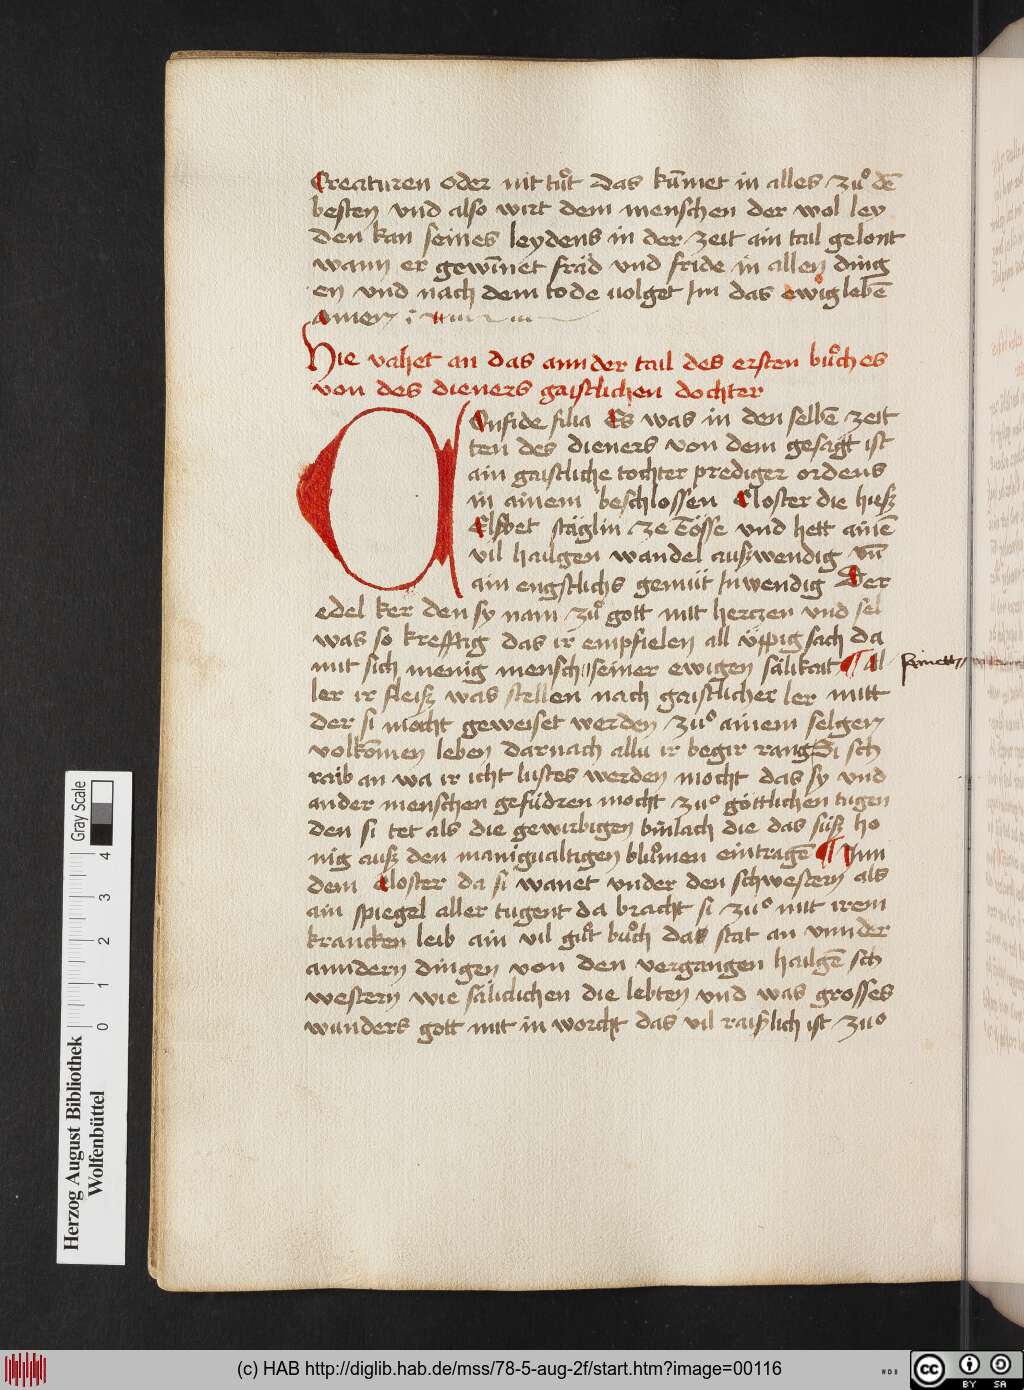 Creaturen oder nit tuͦt das kūmet in alles zuͦ dē
besten vnd also wirt dem menschen der wol ley
den kan seines leydens in der zeit ain tail gelont
wann er gewīnet fräd vnd fride in allen ding
en vnd nach dem tode uolget Im das ewig lebē
Amen
Hie vahet an das annder tail des ersten buͦches
von des dieners gaistlichen dochter
Confide filia Es was in den selbē zeit
ten des dieners von dem gesagt ist
ain gaistliche tochter prediger ordens
in ainem beschlossen Closter die hieß
Elsbet stäglin ze Tösse vnd hett ainē
vil hailgen wandel außwendig vn̄
ain engstlichs gemüt Inwendig Der
edel ker den sy nam zuͦ gott mit herczen vnd sel
was so krefftig das ir empfielen all üppig sach da
mit sich menig mensch seiner ewigen sälikait ¶ Al
ler ir fleiß was stellen nach gaistlicher ler mitt
der si mocht geweiset werden zuͦ ainem selgen
volkōmen leben darnach alla ir begir rang Si sch
raib an wa ir icht lustes werden mocht das sy vnd
ander menschen gefüdren mocht zuͦ göttlichen tugen
den si tet als die gewirbigen binlach die das süß ho
nig auß den manigualtigen bluͦmen eintragē ¶ Inn
dem Closter da si wanet vnder den schwestern als
ain spiegel aller tugent da bracht si zuͦ mit irem
krancken leib ain vil guͦt buͦch das stat an vnnder
anndern dingen von den vergangen hailgē sch
western wie säliclichen die lebten vnd was grosses
wunders gott mit in worcht das vil raislich ist zuͦ
Gray Scale
0 1 2 3 4
Herzog August Bibliothek
Wolfenbüttel
(c) HAB http://diglib.hab.de/mss/78-5-aug-2f/start.htm?image=00116
cc BY SA